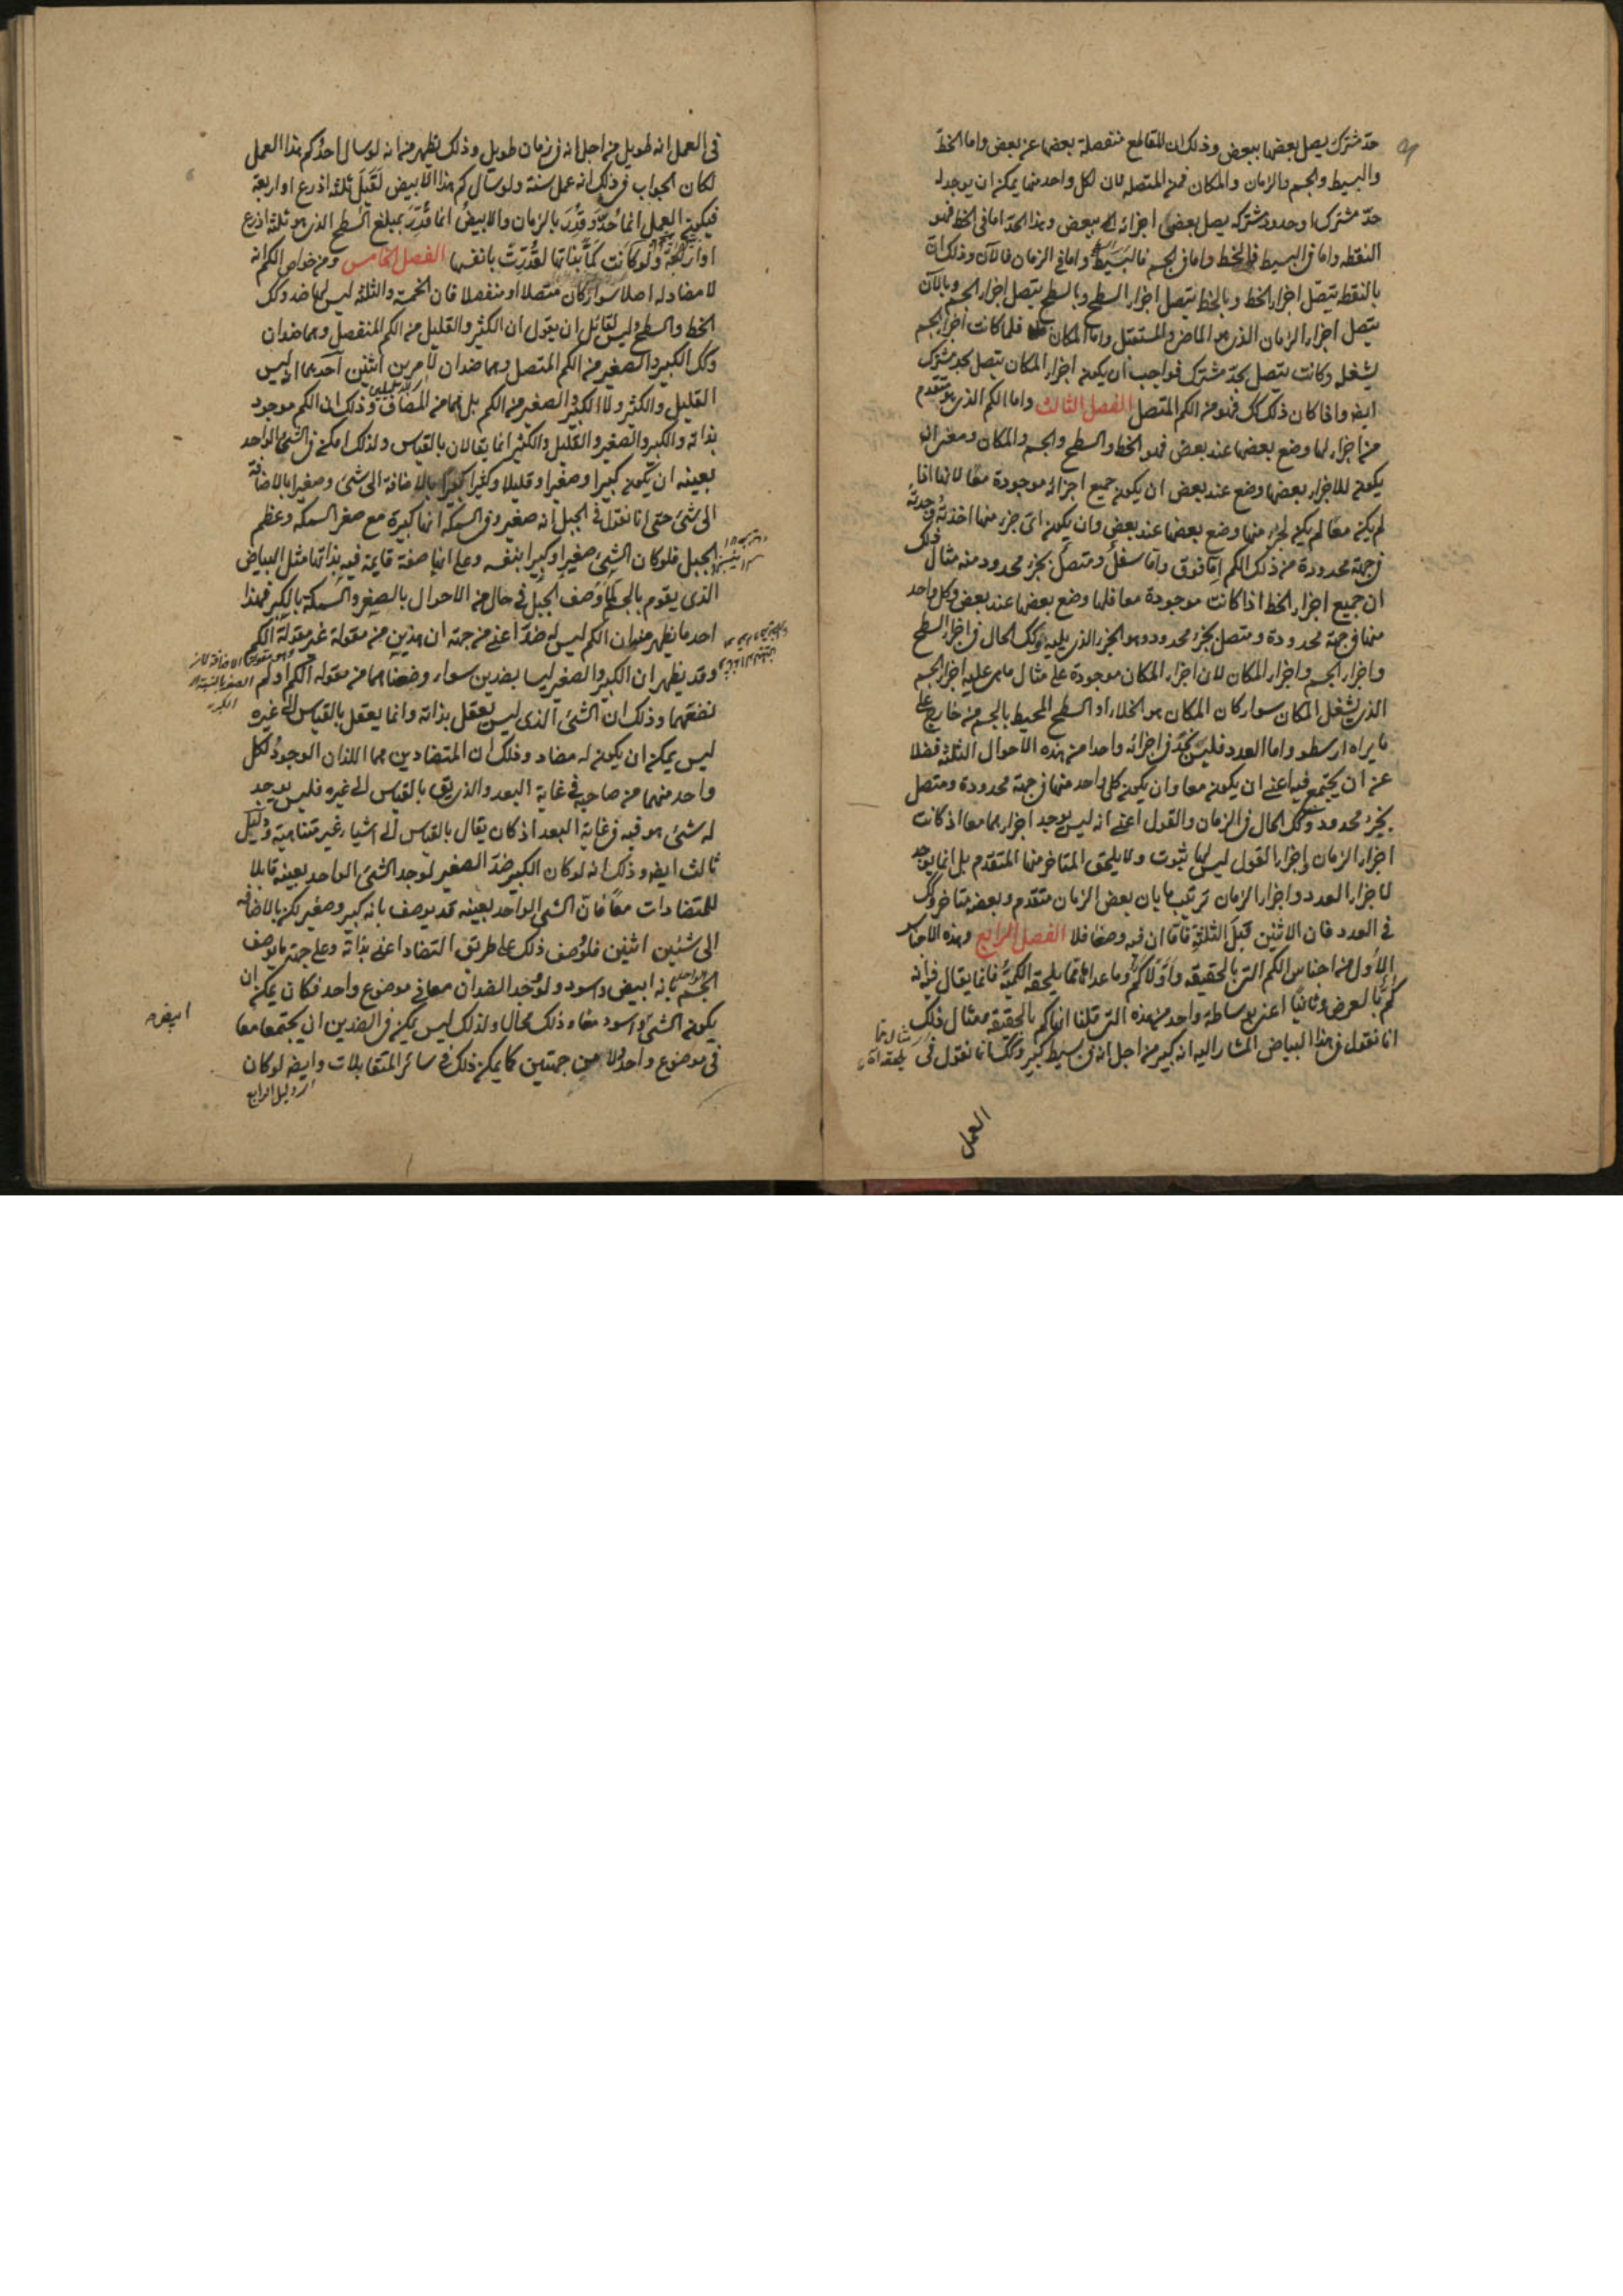 حدّ مشترك يصل بعضها ببعض وذلك ان المقاطع منفصلة بعضها عن بعض واما الخطّ
والبسيط والجسم والزمان والمكان فمن المتصله لان لكل واحد منها يمكن ان يوجد له
حدّ مشترك او حدود مشتركه يصل بعض اجزائه الى ببعض وهذا الحدّ اما فى الخط فهو
النقطه واما فى البسيط فالخط واما فى الجسم فالبسيط واما فى الزمان فالآن وذلك ان
بالنقطه يتصل اجزاء الخط وبالخط يتصل اجزاء السطح وبالسطح يتصل اجزاء الجسم وبالآن
يتصل اجزاء الزمان الذى هو الماضى والمستقبل واما المكان فلما كانت اجزاء الجسم
يشغله وكانت يتصل بحدّ مشترك فواجب ان يكون اجزاء المكان يتصل بحد مشترك
ايضه واذا كان ذلك كك فهو من الكم المتصل الفصل الثالث واما الكم الذى هو متقدم
من اجزاء لها وضع بعضها عند بعض فهو الخط والسطح والجسم والمكان ومعنى ان
يكون للاجزاء بعضها وضع عند بعض ان يكون جميع اجزائه موجودة معًا لانها اذا
لم يكن معا لم يكن لجزء منها وضع بعضها عند بعض وان يكون اىّ جزء منها اخذته وجدته
فى جهة محدودة من ذلك الكم امّا فوق وامّا سفل ومتصل بجزء محدود منه مثال ذلك
ان جميع اجزاء الخط اذا كانت موجودة معا فلها وضع بعضها عند بعض وكل واحد
منها فى جهة محدودة ومتصل بجزء محدود وهو الجزء الذى يليه وكك الحال فى اجزاء السطح
واجزاء الجسم واجزاء المكان لان اجزاء المكان موجودة على مثال ما هى عليه اجزاء الجسم
الذى يشغل المكان سواء كان المكان هو الخلاء او السطح المحيط بالجسم من خارج على
ما يراه ارسطو واما العدد فليس نجد فى اجزائه واحدا من هذه الاحوال الثلثه فضلا
عن ان يجتمع فيه اعنى ان يكون معا وان يكون كل واحد منها فى جهة محدودة ومتصل
بجزء محدود وكك الحال فى الزمان والقول اعنى انه ليس يوجد اجزاءهما معا اذ كانت
اجزاء الزمان واجزاء القول ليس لها ثبوت ولا يلحق المتاخر منها المتقدم بل انما يوجد
لاجزاء العدد واجزاء الزمان ترتيب ما بان بعض الزمان متقدم وبعضه متاخر وكك
فى العدد فان الاثنين قبل الثلثة فامّا ان فيه وضعا فلا الفصل الرابع وهذه الاجناس
الأُول من اجناس الكم التى بالحقيقه واوّلا كم وما عداها مما يلحقه الكمية فانما يقال فيه انه
كم بالعرض وثانيًا اعنى بوساطة واحد من هذه التى قلنا انها كم بالحقيقه مثال ذلك
انا نقول فى هذا البياض المشار اليه انه كبير من اجل انه فى بسيط كبير وكك انا نقول فى
العمل
فى العمل انه طويل من اجل انه فى زمان طويل وذلك يظهر من انه لو سال احدٌ كم هذا العمل
لكان الجواب فى ذلك انه عمل سنة ولو سأل كم هذا الابيض لقيل ثلثه اذرع او اربعة
فيكون العمل انما حدّ وقدّر بالزمان والابيضُ انما قدّر بمبلغ السطح الذى هو ثلثه اذرع
او اربعة ولو كانت كمّا بذاتها لقدّرت بانفسها الفصل الخامس ومن خواص الكم انه
لا مضاد له اصلا سواء كان متصلا او منفصلا فان الخمسة والثلثه ليس لها ضد وكك
الخط والسطح وليس لقائل ان يقول ان الكثير والقليل من الكم المنفصل وهما ضدان
وكك الكبير والصغير من الكم المتصل وهما ضدان لأمرين اثنين احدهما ان ليس
القليل والكثير ولا الكبير والصغير من الكم بل هما من المضاف وذلك ان الكم موجود
بذاته والكبير والصغير والقليل والكثير انما يقالان بالقياس ولذلك امكن فى الشئ الواحد
بعينه ان يكون كبيرا وصغيرا وقليلا وكثيرا بالاضافة الى شئ وصغيرا بالاضافة
الى شئ حتى انا نقول فى الجبل انه صغير وفى السمكة انها كبيرة مع صغر السمكه وعظم
الجبل فلو كان الشئ صغيرا وكبيرا بنفسه وعلى انها صفة قايمة فيه بذاتها مثل البياض
الذى يقوم بالجسم لما وُصف الجبل فى حال من الاحوال بالصغر والسمكة بالكبر فهذا
احد ما يظهر منه ان الكم ليس له ضدّ اعنى من جهة ان هذين من مقولة غير مقولة الكم
وقد يظهر ان الكبير والصغير ليسا بضدين سواء وضعناهما من مقوله الكم او لم
نضعهما وذلك ان الشئ الذى ليس يعقل بذاته وانما يعقل بالقياس الى غيره
ليس يمكن ان يكون له مضاد وذلك ان المتضادين هما اللذان الوجودُ لكل
واحد منهما من صاحبه فى غاية البعد والذى يق بالقياس الى غيره فليس يوجد
له شئ هو فيه فى غاية البعد اذ كان يقال بالقياس الى اشياء غير متناهية ودليل
ثالث ايضه وذلك انه لو كان الكبير ضدّ الصغير لوجد الشئ الواحد بعينه قابلا
للمتضادات معًا فانّ الشئ الواحد بعينه قد يوصف بانه كبير وصغير لكن بالاضافه
الى شئين اثنين فلو وُصف ذلك على طريق التضاد اعنى بذاته وعلى جهة ما يوصف
الجسم الواحد بانه ابيض واسود ولو وُجد الضدان معا فى موضوع واحد فكان يمكن ان
يكون الشئ اسود معا وذلك محال ولذلك ليس يمكن فى الضدين ان يجتمعا معا
ابيض
فى موضوع واحد ولا من جهتين كما يمكن ذلك فى سائر المتقابلات وايضه لو كان